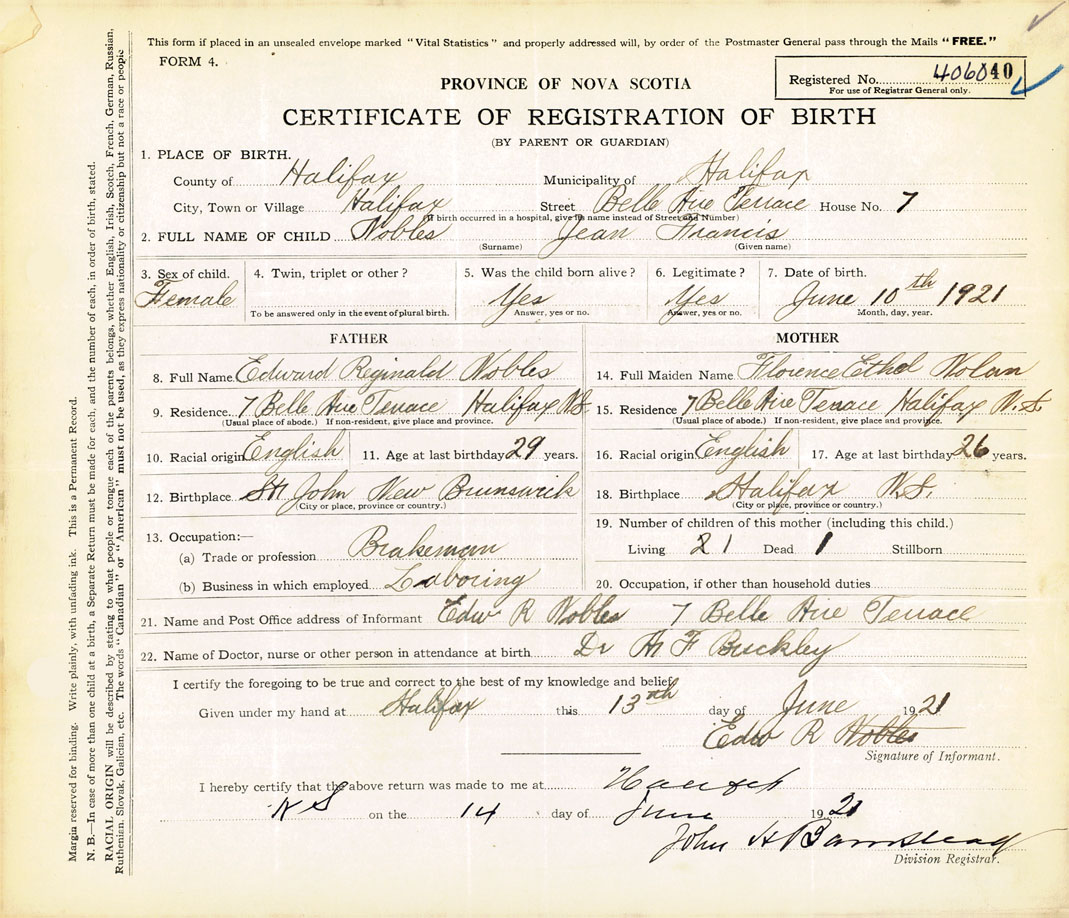 This form if placed in an unsealed envelope marked "Vital Statistics" and properly addressed will, by order of the Postmaster General pass through the Mails "FREE."
FORM 4.
Registered No. 406040
For use of Registrar General only.
PROVINCE OF NOVA SCOTIA
CERTIFICATE OF REGISTRATION OF BIRTH
(BY PARENT OR GUARDIAN)
1. PLACE OF BIRTH.
County of Halifax Municipality of Halifax
City, Town or Village Halifax Street Belle Aire Terrace House No. 7
(If birth occurred in a hospital, give its name instead of Street and Number)
2. FULL NAME OF CHILD Nobles Jean Francis
(Surname) (Given name)
3. Sex of child. 4. Twin, triplet or other? 5. Was the child born alive? 6. Legitimate? 7. Date of birth.
Female Yes Yes June 10th 1921
To be answered only in the event of plural birth. Answer, yes or no. Answer, yes or no. Month, day, year.
FATHER MOTHER
8. Full Name Edward Reginald Nobles 14. Full Maiden Name Florence Ethel Nolan
9. Residence 7 Belle Aire Terrace Halifax N.S. 15. Residence 7 Belle Aire Terrace Halifax N.S.
(Usual place of abode.) If non-resident, give place and province. (Usual place of abode.) If non-resident, give place and province.
10. Racial origin English 11. Age at last birthday 29 years. 16. Racial origin English 17. Age at last birthday 26 years.
12. Birthplace St John New Brunswick 18. Birthplace Halifax N.S.
(City or place, province or country.) (City or place, province or country.)
13. Occupation:— 19. Number of children of this mother (including this child.)
(a) Trade or profession Brakeman Living 21 Dead 1 Stillborn
(b) Business in which employed Laboring 20. Occupation, if other than household duties
21. Name and Post Office address of Informant Edw R Nobles 7 Belle Aire Terrace
22. Name of Doctor, nurse or other person in attendance at birth Dr H F Buckley
I certify the foregoing to be true and correct to the best of my knowledge and belief.
Given under my hand at Halifax this 13th day of June 1921
Edw R Nobles
Signature of Informant.
I hereby certify that the above return was made to me at Halifax
N S on the 14 day of June 1921
John H Barnstead
Division Registrar.
Margin reserved for binding. Write plainly, with unfading ink. This is a Permanent Record.
N. B.—In case of more than one child at a birth, a Separate Return must be made for each, and the number of each, in order of birth, stated.
RACIAL ORIGIN will be described by stating to what people or tongue each of the parents belongs, whether English, Irish, Scotch, French, German, Russian,
Ruthenian, Slovak, Galician, etc. The words "Canadian" or "American" must not be used, as they express nationality or citizenship but not a race or people